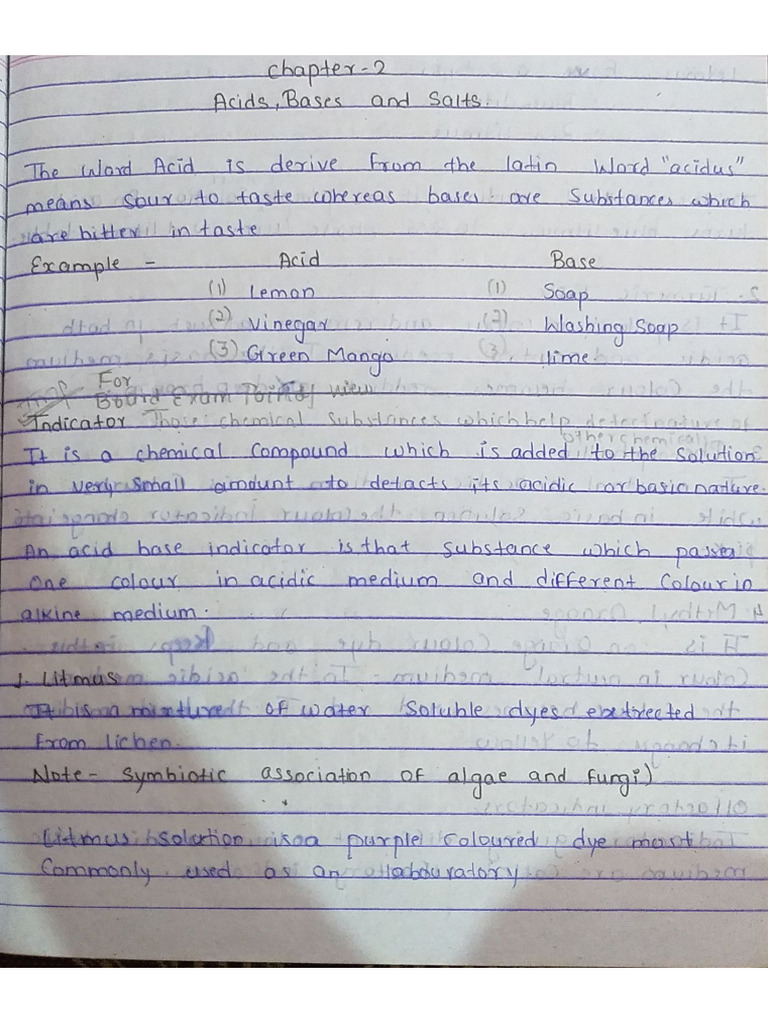 Chapter-2
Acids, Bases and Salts.
The Word Acid is derive from the latin Word "acidus"
means sour to taste whereas bases are Substances which
are bitter in taste
Example - Acid Base
(1) Lemon (1) Soap
(2) Vinegar (2) Washing Soap
(3) Green Mango (3) lime.
For
Board Exam Point of view
Indicator Those chemical substances which help detect nature of
other chemical
It is a chemical Compound which is added to the Solution
in very small amount to detacts its acidic or basic nature.
An acid base indicator is that substance which passes
one colour in acidic medium and different Colour in
alkine medium.
1. Litmus
It is a mixture of water Soluble dyes extrected
from lichen.
Note- Symbiotic association of algae and fungi)
Litmus solution is a purple coloured dye most
Commonly used as an labduratory